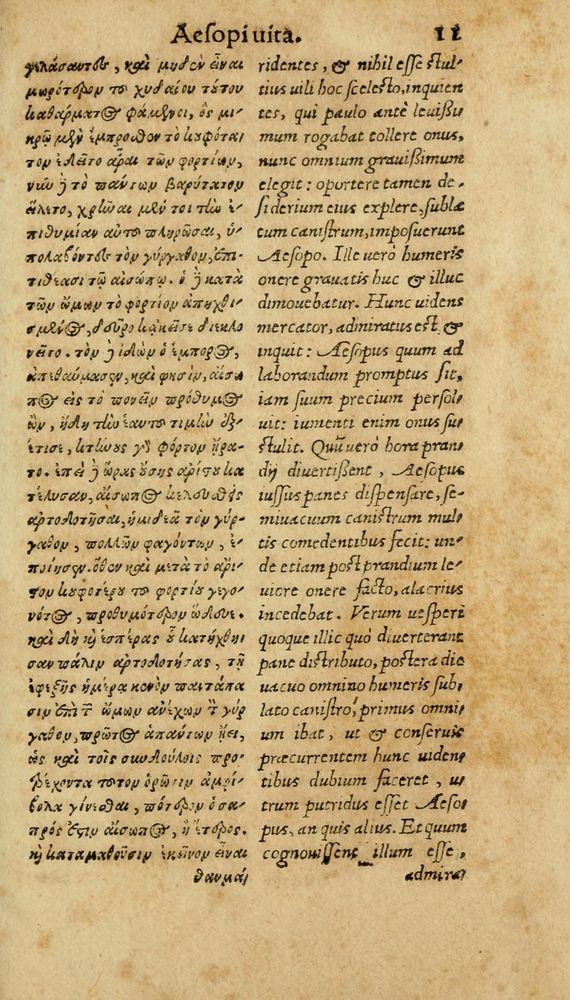 Aesopi uita. 11
γελάσαντες, καὶ μηδὲν εἶναι
μωρότερον τοῦ χυδαίου τούτου
καθάρματος φάμενοι, ὃς μι-
κρῷ μὲν ἔμπροσθεν τὸ κουφότα-
τον ἐλεῖτο ἆραι τῶν φορτίων,
νῦν δὲ τὸ πάντων βαρύτατον
εἵλετο, χρῆναι μέν τοι τὴν ἐ-
πιθυμίαν αὐτοῦ πληρῶσαι, ὑ-
πολαβόντες τὸν γύργαθον, ἐπι-
τιθέασι τῷ αἰσώπῳ. ὁ δὲ κατὰ
τῶν ὤμων τὸ φορτίον ἀπηχθι-
σμένος, δεῦρο κἀκεῖσε διεκλο-
νεῖτο. τὸν δὲ ἰδὼν ὁ ἔμπορος,
ἀπεθαύμασεν, καὶ φησὶν, αἴσω-
πος εἰς τὸ πονεῖν πρόθυμος
ὢν, ἤδη τὴν ἑαυτοῦ τιμὴν ἐξ-
έτισε, κτήνους γὰρ φόρτον ᾖρα-
το. ἐπεὶ δὲ ὥρας οὔσης ἀρίστου κα-
τέλυσαν, αἴσωπος κελευσθεὶς
ἀρτοδοτῆσαι, ἡμιδεᾶ τὸν γύρ-
γαθον, πολλῶν φαγόντων, ἐ-
ποίησεν. ὅθεν καὶ μετὰ τὸ ἄρι-
στον κουφοτέρου τοῦ φορτίου γεγο-
νότος, προθυμότερον ὥδευε.
καὶ δὴ καὶ ἑσπέρας οὗ κατήχθη-
σαν πάλιν ἀρτοδοτήσας, τῇ
ἐφεξῆς ἡμέρᾳ κενὸν παντάπα-
σιν ἐπὶ τῶν ὤμων ἀνέχων τὸν γύρ-
γαθον, πρῶτος ἁπάντων ᾔει,
ὡς καὶ τοῖς συνδούλοις προ-
τρέχοντα τοῦτον ὁρῶσιν ἀμφί-
βολα γίνεσθαι, πότερον ὁ σα-
πρός ἐστιν αἴσωπος, ἢ ἕτερος.
καὶ καταμαθοῦσιν ἐκεῖνον εἶναι
θαυμά-
ridentes, & nihil esse stul-
tius uili hoc scelesto, inquien
tes, qui paulo antè leuissi-
mum rogabat tollere onus,
nunc omnium grauissimum
elegit: oportere tamen de-
siderium eius explere, subla
tum canistrum, imposuerunt
Aesopo. Ille uerò humeris
onere grauatis huc & illuc
dimouebatur. Hunc uidens
mercator, admiratus est, &
inquit: Aesopus quum ad
laborandum promptus sit,
iam suum precium persol-
uit: iumenti enim onus su-
stulit. Quũ uerò hora pran
dij diuertissent, Aesopus
iussus panes dispensare, se-
miuacuum canistrum mul-
tis comedentibus fecit: un-
de etiam post prandium le-
uiore onere facto, alacrius
incedebat. Verum uesperi
quoque illic quò diuerterant
pane distributo, postera die
uacuo omnino humeris sub-
lato canistro, primus omni-
um ibat, ut & conseruis
præcurrentem hunc uiden-
tibus dubium faceret, u-
trum putridus esset Aeso-
pus, an quis alius. Et quum
cognouissent illum esse,
admira-